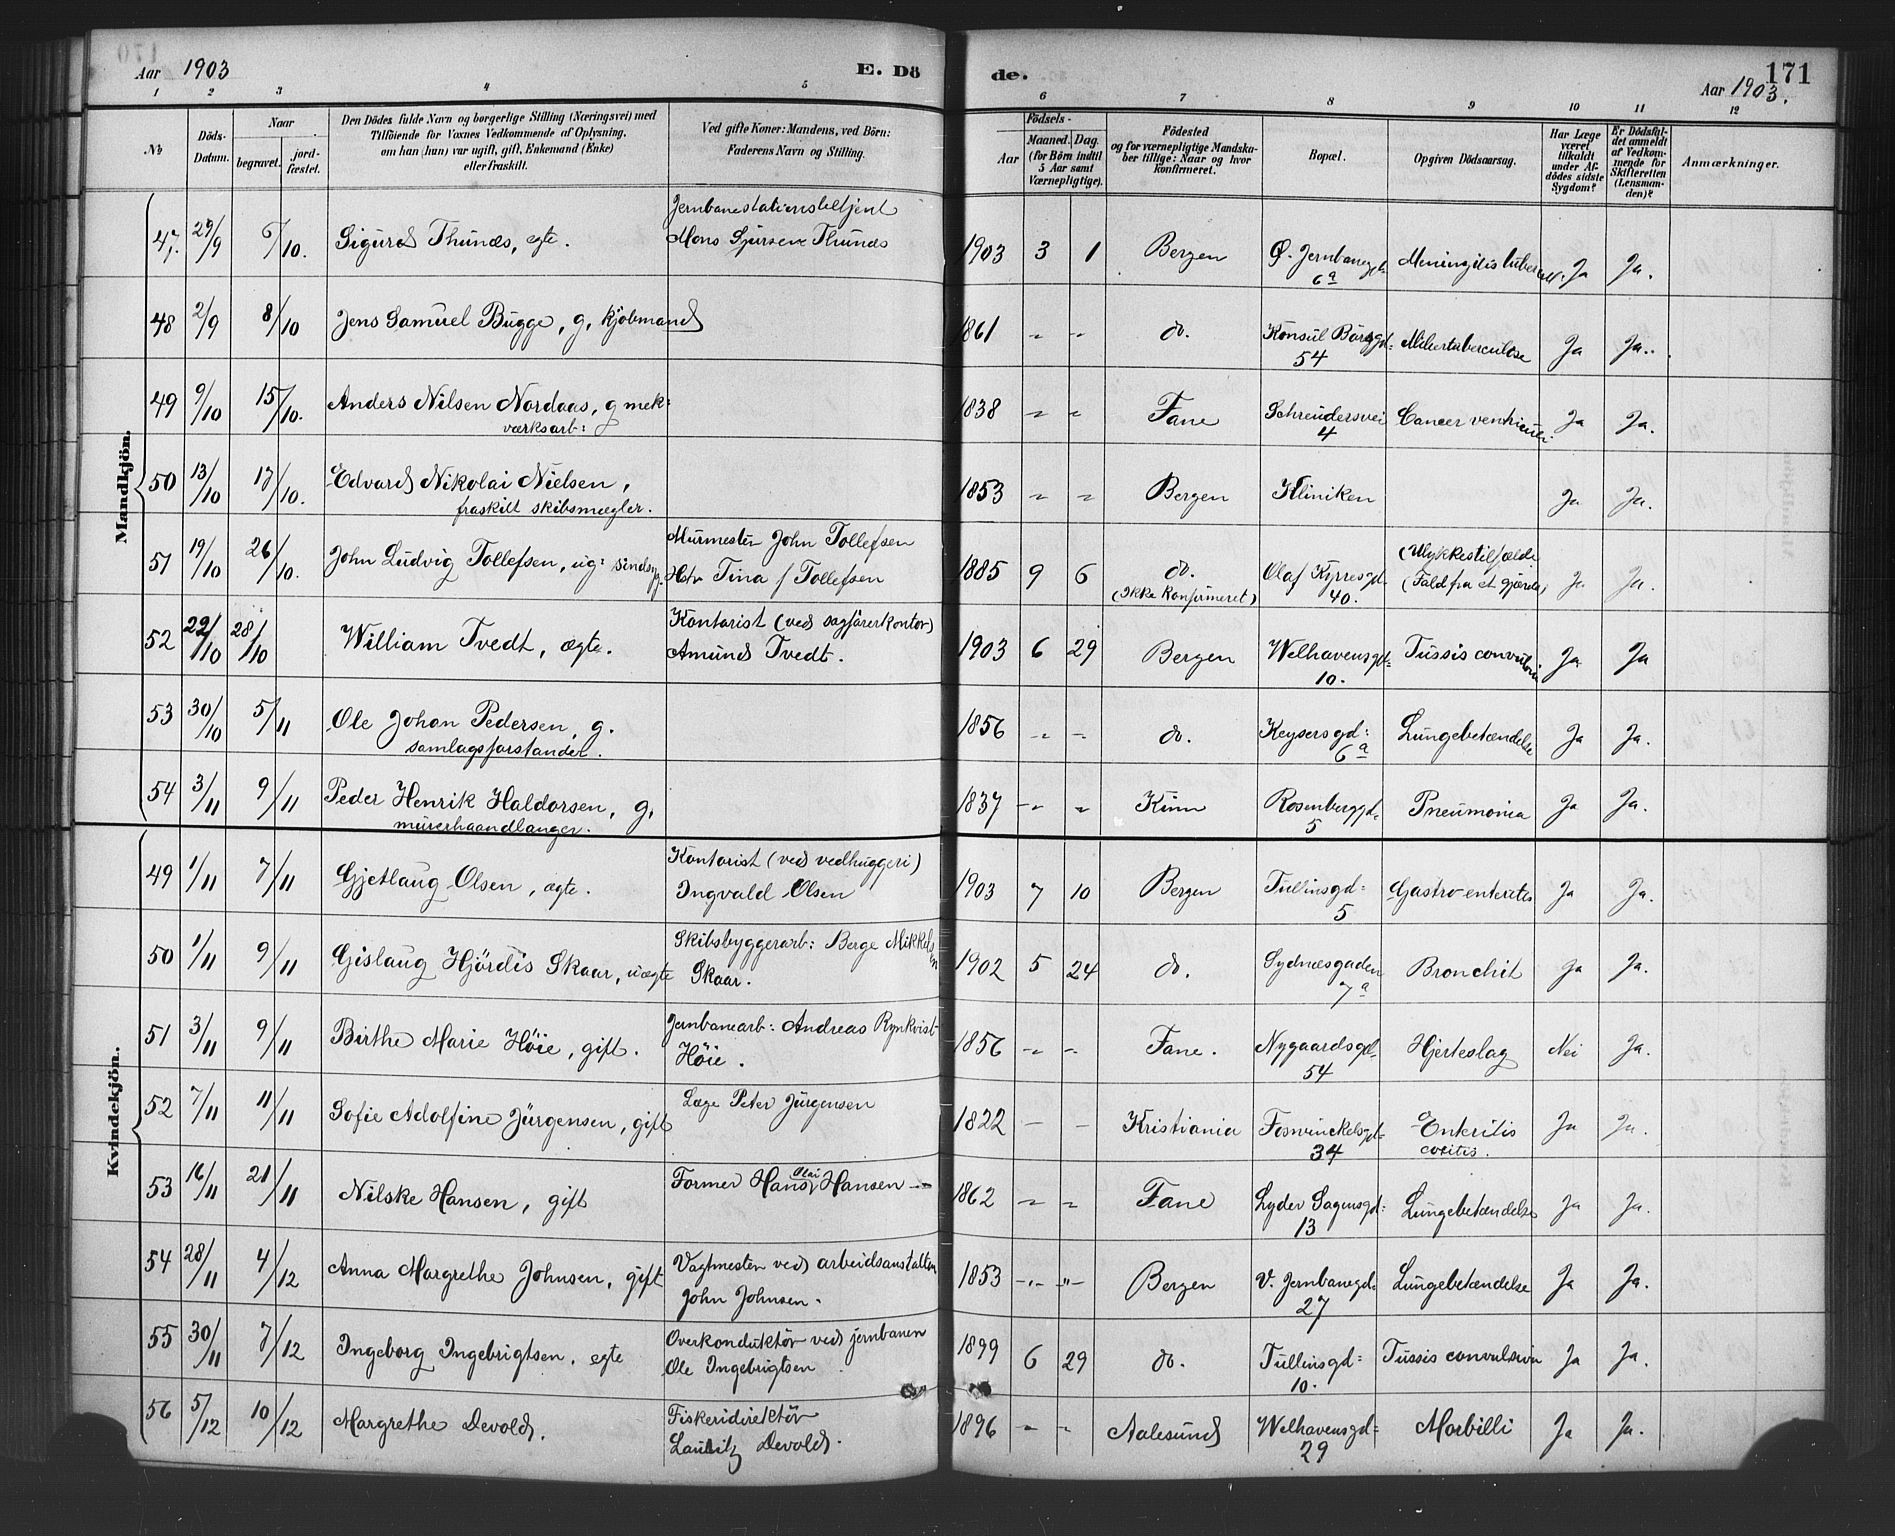 Aar 1903 E. Dö de. 171
Aar 1903.
1 2 3 4 5 6 7 8 9 10 11 12
№ Döds-Datum. Naar begravet. jord-fæstet. Den Dödes fulde Navn og borgerlige Stilling (Næringsvei) med Tilföiende for Voxnes Vedkommende af Oplysning, om han (hun) var ugift, gift, Enkemand (Enke) eller fraskilt. Ved gifte Koner: Mandens, ved Börn: Faderens Navn og Stilling. Födsels- Aar Maaned. Dag. (for Börn indtil 5 Aar samt Værnepligtige). Födested og for værnepligtige Mandska-ber tillige: Naar og hvor konfirmeret. Bopæl. Opgiven Dödsaarsag. Har Læge været tilkaldt under Af-dödes sidste Sygdom? Er Dödsfal-det anmeldt af Vedkom-mende for Skifteretten (Lensman-den)? Anmærkninger.
Mandkjön.
47. 29/9 6/10. Sigurd Thunæs, ægte. Jernbanestationsbetjent Mons Sjursen Thunæs 1903 3 1 Bergen Ø. Jernbanegd: 6a Meningitis tubercul. Ja Ja.
48 2/9 8/10 Jens Samuel Bugge, g, kjöbmand 1861 " " do. Konsul Börsgd: 54 Miliertuberculose Ja Ja.
49 9/10 15/10. Anders Nilsen Nordaas, g mek: værksarb: 1838 " " Fane Schreudersvei 4 Cancer ventriculi Ja Ja.
50 13/10 17/10. Edvard Nikolai Nielsen, fraskilt skibsmægler. 1853 " " Bergen Kliniken Ja Ja.
51 19/10 26/10. John Ludvig Tollefsen, ug: sindsyg. Murmester John Tollefsen Hstr Tina f Tollefsen 1885 9 6 do. (Ikke konfirmeret) Olaf Kyrresgd. 40. (Ulykkestilfælde (Fald fra et gjærde) Ja Ja.
52 22/10 28/10 William Tvedt, ægte. Kontorist (ved sagförerkontor) Amund Tvedt. 1903 6 29 Bergen Welhavensgd: 10. Tussis convulsiva Ja Ja
53 30/10 5/11 Ole Johan Pedersen, g. samlagsforstander. 1856 " " do. Keysersgd: 6a Lungebetændelse Ja Ja.
54 3/11 9/11 Peder Henrik Haldorsen, g, murerhaandlanger. 1837 " " Kinn Rosenberggd: 5 Pneumonia Ja Ja.
Kvindekjön.
49 1/11 7/11 Gjetlaug Olsen, ægte. Kontorist (ved vedhuggeri) Ingvald Olsen 1903 7 10 Bergen Tullinsgd: 5 Gastro-enterites Ja Ja.
50 1/11 9/11 Gislaug Hjördis Skaar, uægte Skibsbyggerarb: Berge Mikkelsen Skaar. 1902 5 24 do. Sydnæsgaden 7a Bronchit Ja Ja.
51 3/11 9/11 Birthe Marie Höie, gift. Jernbanearb: Andreas Rynkvist Höie. 1856 " " Fane. Nygaardsgd: 54 Hjerteslag Nei Ja.
52 7/11 11/11 Sofie Adolfine Jürgensen, gift Læge Peter Jürgensen 1822 - - Kristiania Foswinckelsgd: 34 Enteritis Ja Ja.
53 16/11 21/11 Nilske Hansen, gift Former Hans Olai Hansen 1862 " " Fane Lyder Sagensgd: 13 Lungebetændelse Ja Ja.
54 28/11 4/12 Anna Margrethe Johnsen, gift Vagtmester ved arbeidsanstalten John Johnsen. 1853 " " Bergen V. Jernbanegd: 27 Lungebetændelse Ja Ja.
55 30/11 7/12 Ingeborg Ingebrigtsen, egte Overkonduktör ved jernbanen Ole Ingebrigtsen 1899 6 29 do. Tullinsgd: 10. Tussis convulsiva Ja Ja.
56 5/12 10/12 Margrethe Devold. Fiskeridirektör Lauritz Devold. 1896 " " Aalesund Welhavensgd: 29 Morbilli Ja Ja.